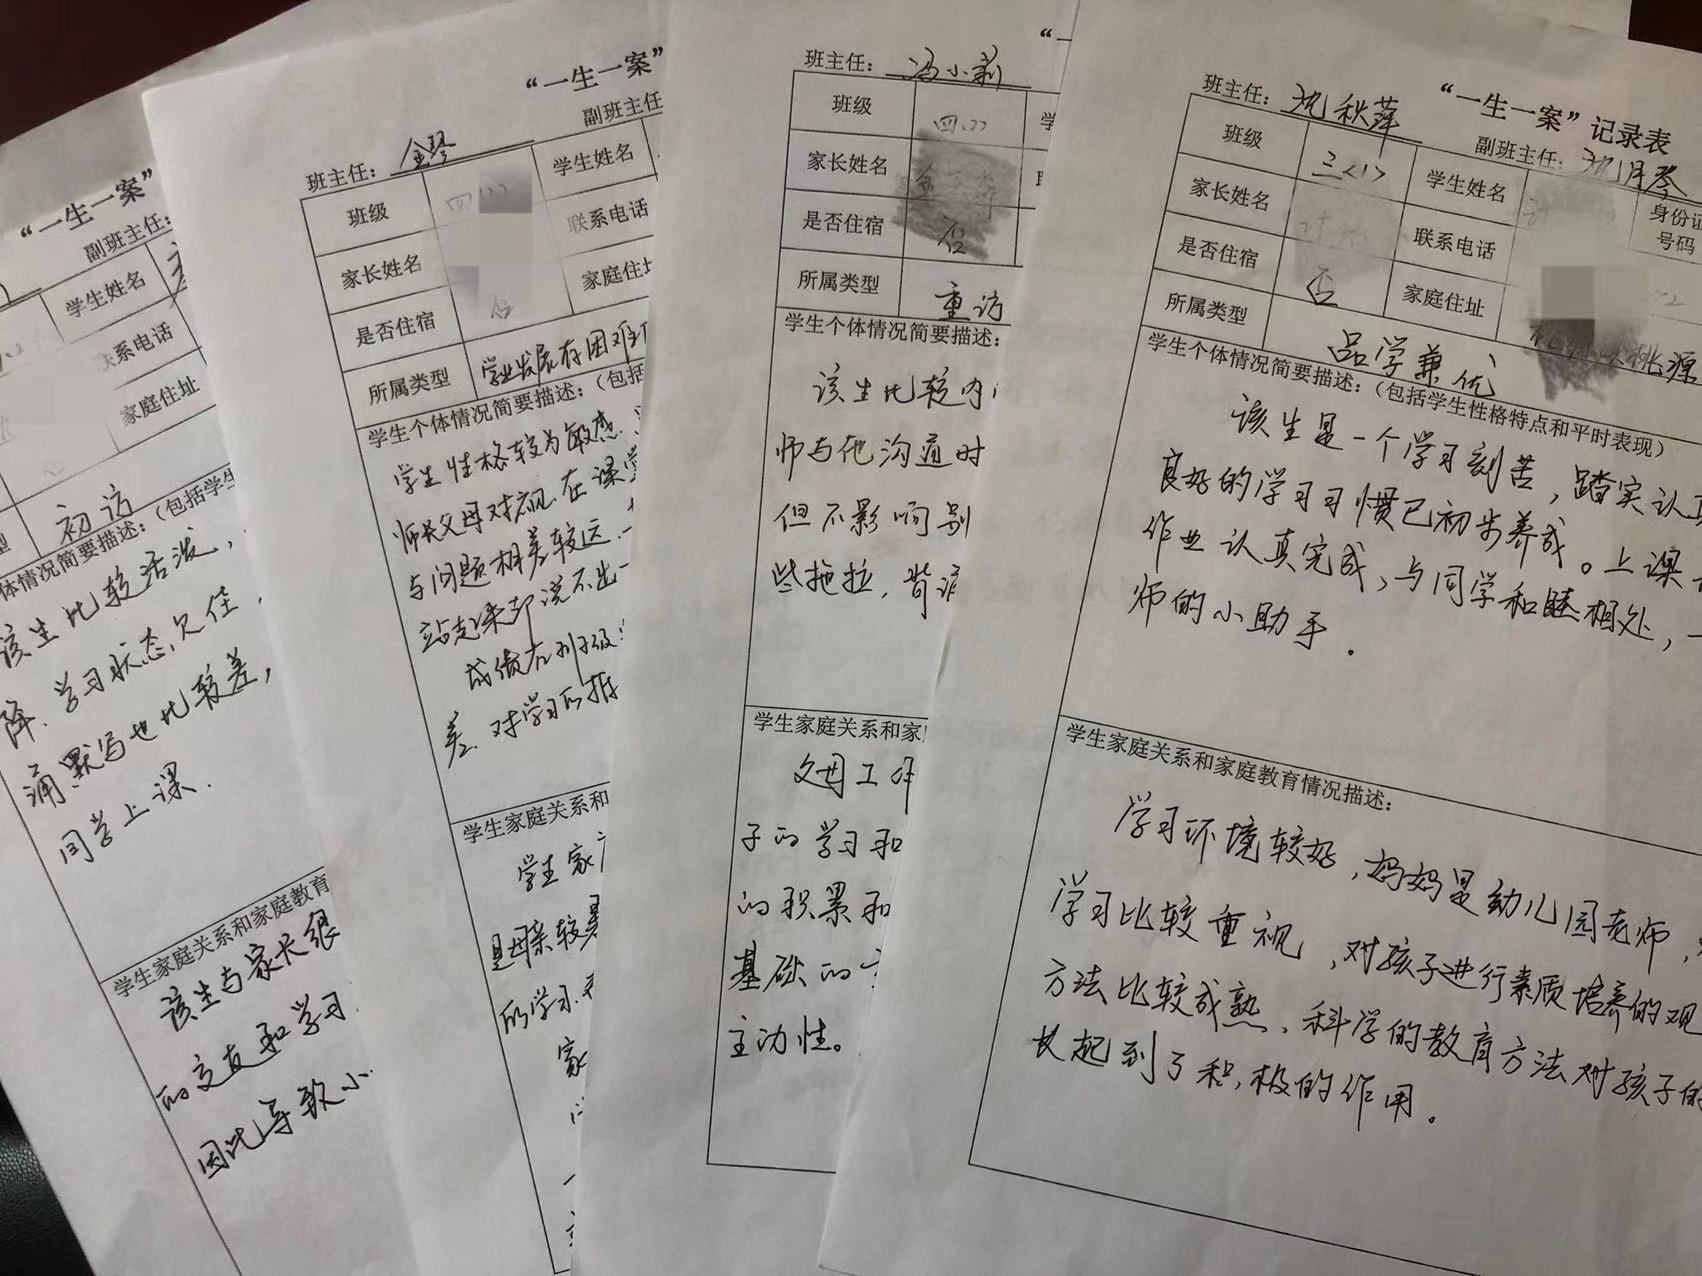 “一生一案”
副班主任:
学生姓名
联系电话
家庭住址
初访
体情况简要描述:(包括学生
该生比较活泼,
降.学习状态欠佳,
涌默写也比较差,
同学上课.
学生家庭关系和家庭教育
该生与家长很
的交友和学习.
因此导致小
“一生一案”
班主任: 金琴
副班主任
班级 四
学生姓名
家长姓名
联系电话
是否住宿 否
家庭住址
所属类型 学业发展存困难
学生个体情况简要描述:(包括
学生性格较为敏感.
师长父母对视.在课堂
与问题相差较远.
站起来却说不出一
成绩在班级
差.对学习的抵
学生家庭关系和
学生家
是母亲较
的学习.
家
“一
班主任: 冯小莉
班级 四
学
家长姓名
是否住宿 否
所属类型 重访
学生个体情况简要描述:
该生比较内
师与他沟通时
但不影响别
些拖拉,背
学生家庭关系和家
父母工作
子的学习和
的积累和
基础的
主动性。
“一生一案”记录表
班主任: 沈秋萍
副班主任: 沈月琴
班级 三<1>
学生姓名
身份证号码
家长姓名
联系电话
是否住宿 否
家庭住址 桃源
所属类型 品学兼优
学生个体情况简要描述:(包括学生性格特点和平时表现)
该生是一个学习刻苦,踏实认真
良好的学习习惯已初步养成。上课
作业认真完成,与同学和睦相处,一
师的小助手.
学生家庭关系和家庭教育情况描述:
学习环境较好,妈妈是幼儿园老师,
学习比较重视,对孩子进行素质培养的观
方法比较成熟、科学的教育方法对孩子的
长起到了积极的作用.